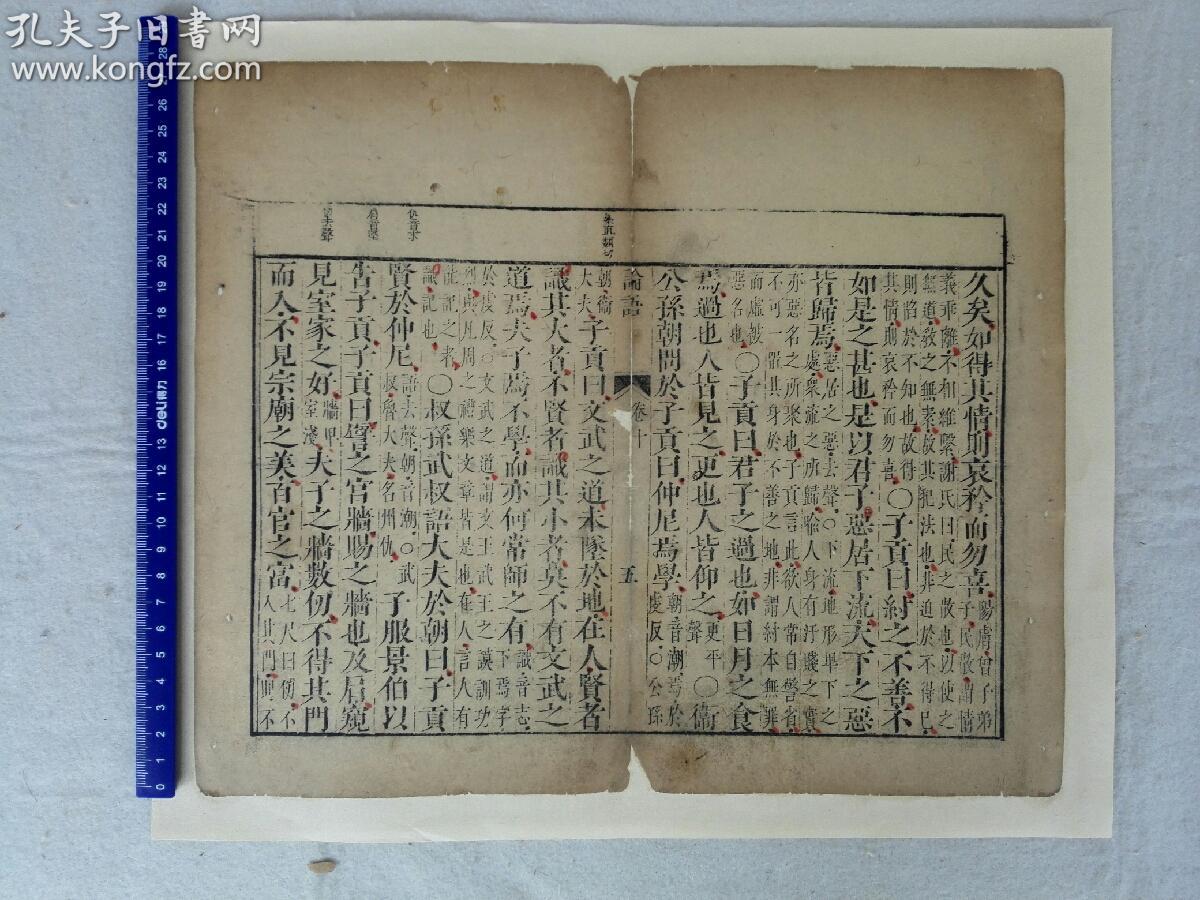 孔夫子旧書网
www.kongfz.com
deli得力
0 1 2 3 4 5 6 7 8 9 10 11 12 13 14 15 16 17 18 19 20 21 22 23 24 25 26 27 28
久矣如得其情則哀矜而勿喜陽膚曾子弟子民散謂情
義乖離不相維繫謝氏曰民之散也以使之
無道教之無素故其犯法也非迫於不得已
則陷於不知也故得其情則哀矜而勿喜○子貢曰紂之不善不
如是之甚也是以君子惡居下流天下之惡
皆歸焉惡居之惡去聲○下流地形卑下之處衆流之所歸喻人身有汙賤之實
亦惡名之所聚也子貢言此欲人常自警省
不可一置其身於不善之地非謂紂本無罪
而虛被惡名也○子貢曰君子之過也如日月之食
焉過也人皆見之更也人皆仰之更平聲○衞
公孫朝問於子貢曰仲尼焉學朝音潮焉於虔反○公孫
論語 卷十 五
朝衞大夫子貢曰文武之道未墜於地在人賢者
識其大者不賢者識其小者莫不有文武之
道焉夫子焉不學而亦何常師之有識音志下焉字
於虔反○文武之道謂文王武王之謨訓功
烈與凡周之禮樂文章皆是也在人言人有
能記之者識記也○叔孫武叔語大夫於朝曰子貢
賢於仲尼語去聲朝音潮○武叔魯大夫名州仇子服景伯以
告子貢子貢曰譬之宮牆賜之牆也及肩窺
見室家之好牆卑室淺夫子之牆數仞不得其門
而入不見宗廟之美百官之富七尺曰仞不入其門則不